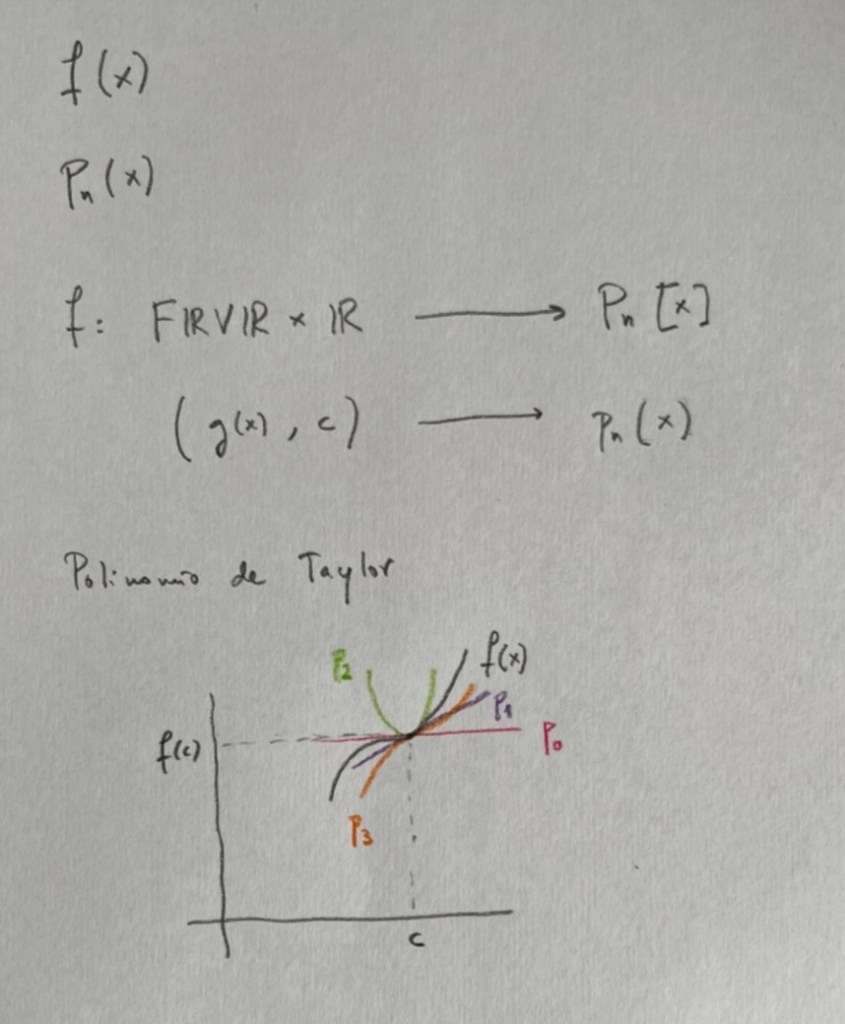 f(x)
Pn(x)
f: FIRVIR × IR ⟶ Pn[x]
(g(x), c) ⟶ Pn(x)
Polinomio de Taylor
P2
f(x)
P1
f(c)
P0
P3
c